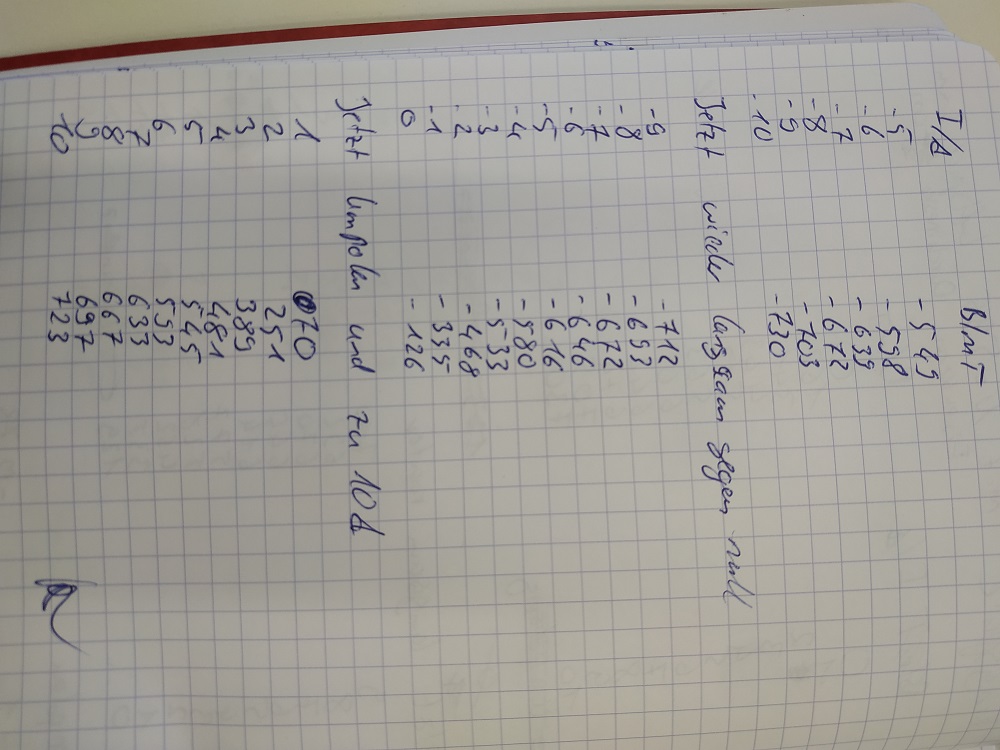 I/A B/mT
-5 -549
-6 -598
-7 -639
-8 -672
-9 -703
-10 -730
Jetzt wieder langsam gegen null
-9 -712
-8 -693
-7 -672
-6 -646
-5 -616
-4 -580
-3 -533
-2 -468
-1 -335
0 -126
Jetzt Umpolen und zu 10A
1 070
2 251
3 389
4 481
5 545
6 593
7 633
8 667
9 697
10 723